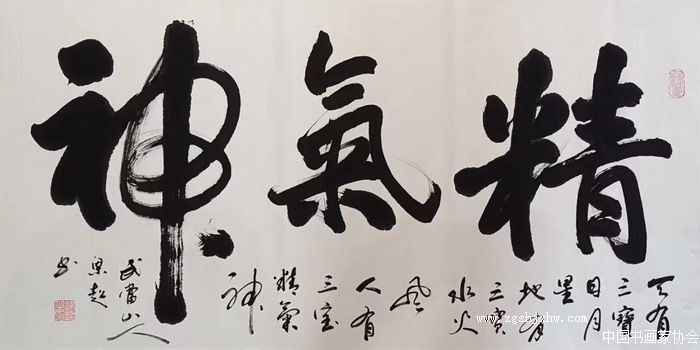 精氣神
天有
三寶
日月
星
地有
三寶
水火
風
人有
三宝
精氣
神
武當山人
超
书
www.zgshjxhw.com
中国书画家协会